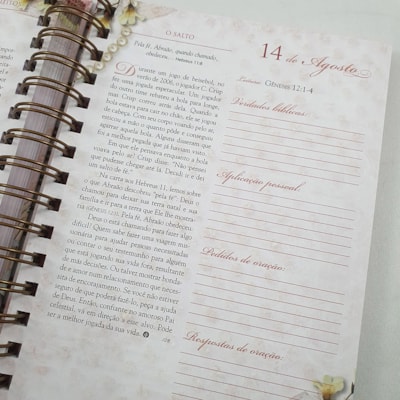 O SALTO
Pela fé, Abraão, quando chamado,
obedeceu...
Hebreus 11:8
Durante um jogo de beisebol, no
verão de 2006, o jogador C. Crisp
fez uma jogada espetacular. Um jogador
do outro time rebateu a bola para longe,
mas Crisp correu atrás dela. Quando a
bola estava para cair no chão, ele se jogou
voando, com o corpo e o braço
agarrar aquela bola. Alguns disseram que
foi a melhor jogada que já haviam visto.
Em que ele pensava enquanto a bola
voava pelo ar? Crisp disse: "Não pensei
que pudesse chegar até lá. Decidi ir e dei
um salto de fé."
Na carta aos Hebreus 11, lemos sobre
o que Abraão decidiu "pela fé". Deus o
chamou para deixar sua terra natal e sua
família e ir para a terra que Ele lhe mostraria
Pela fé, Abraão obedeceu.
Deus o está chamando para fazer algo
difícil? Quem sabe fazer uma viagem missionária
para ajudar pessoas necessitadas
ou contar o seu testemunho para alguém
que está jogando sua vida fora, resultante
de más decisões. Ou talvez mostrar bondade
e amor num relacionamento que necessite
de encorajamento. Se você não estiver
seguro de que poderá fazê-lo, peça a ajuda
de Deus. Então, confiante no amoroso Pai
celestial, vá em direção a esse alvo. Pode
ser a melhor jogada da sua vida.
14 de Agosto
Leitura: Gênesis 12:1-4
Verdades bíblicas:
Aplicação pessoal:
Pedidos de oração:
Respostas de oração: